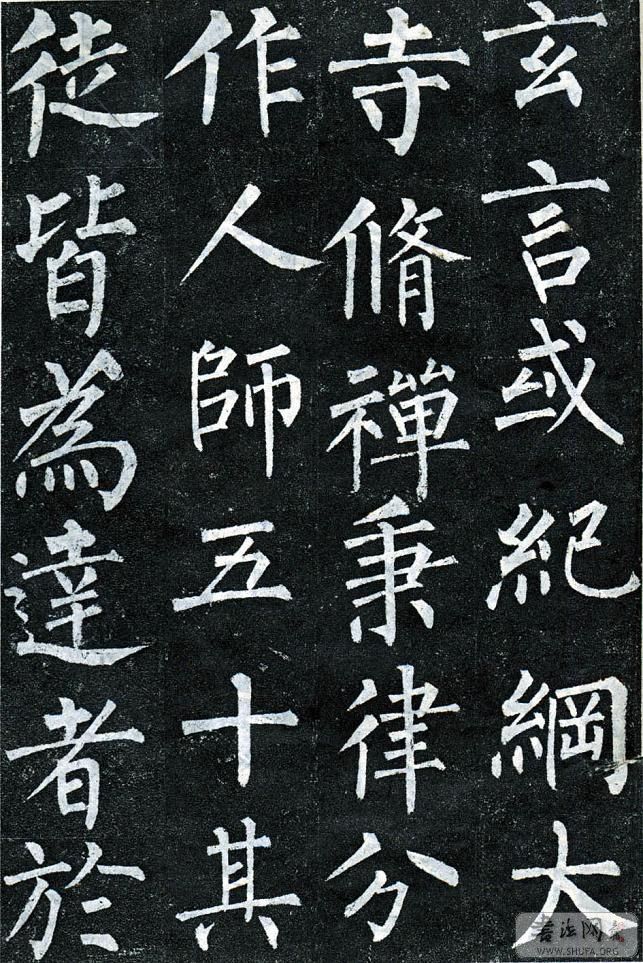 玄言或紀綱大
寺脩禪秉律分
作人師五十其
徒皆為達者於
書法网
WWW.SHUFA.ORG